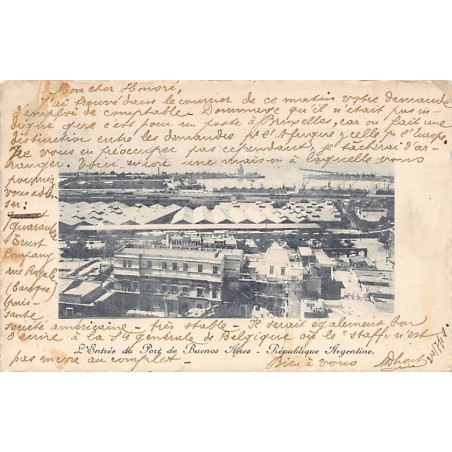 Mon cher Honoré,
J'ai trouvé dans le courrier de ce matin votre demande
d'emploi de comptable. Dommage qu'il n'était pas in-
diqué que c'est pour un poste à Bruxelles, car on fait une
distinction entre les demandes pr l'Afrique & celle pr l'Europe.
Ne vous en préoccuper pas cependant, je tâcherai d'ar-
ranger. Voici encore une maison à laquelle vous
pouvez
vous adres-
ser :
Guaranty
Trust
Company
rue Royale
(puis-
sante
société américaine - très stable - Il serait également bon
d'écrire à la Sté générale de Belgique où le staff n'est
pas encore au complet -
L'Entrée du Port de Buenos Aires - République Argentine.
Bien à vous